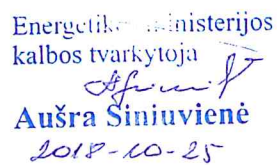 Energetikos ministerijos
kalbos tvarkytoja
Aušra Siniuvienė
2018-10-25